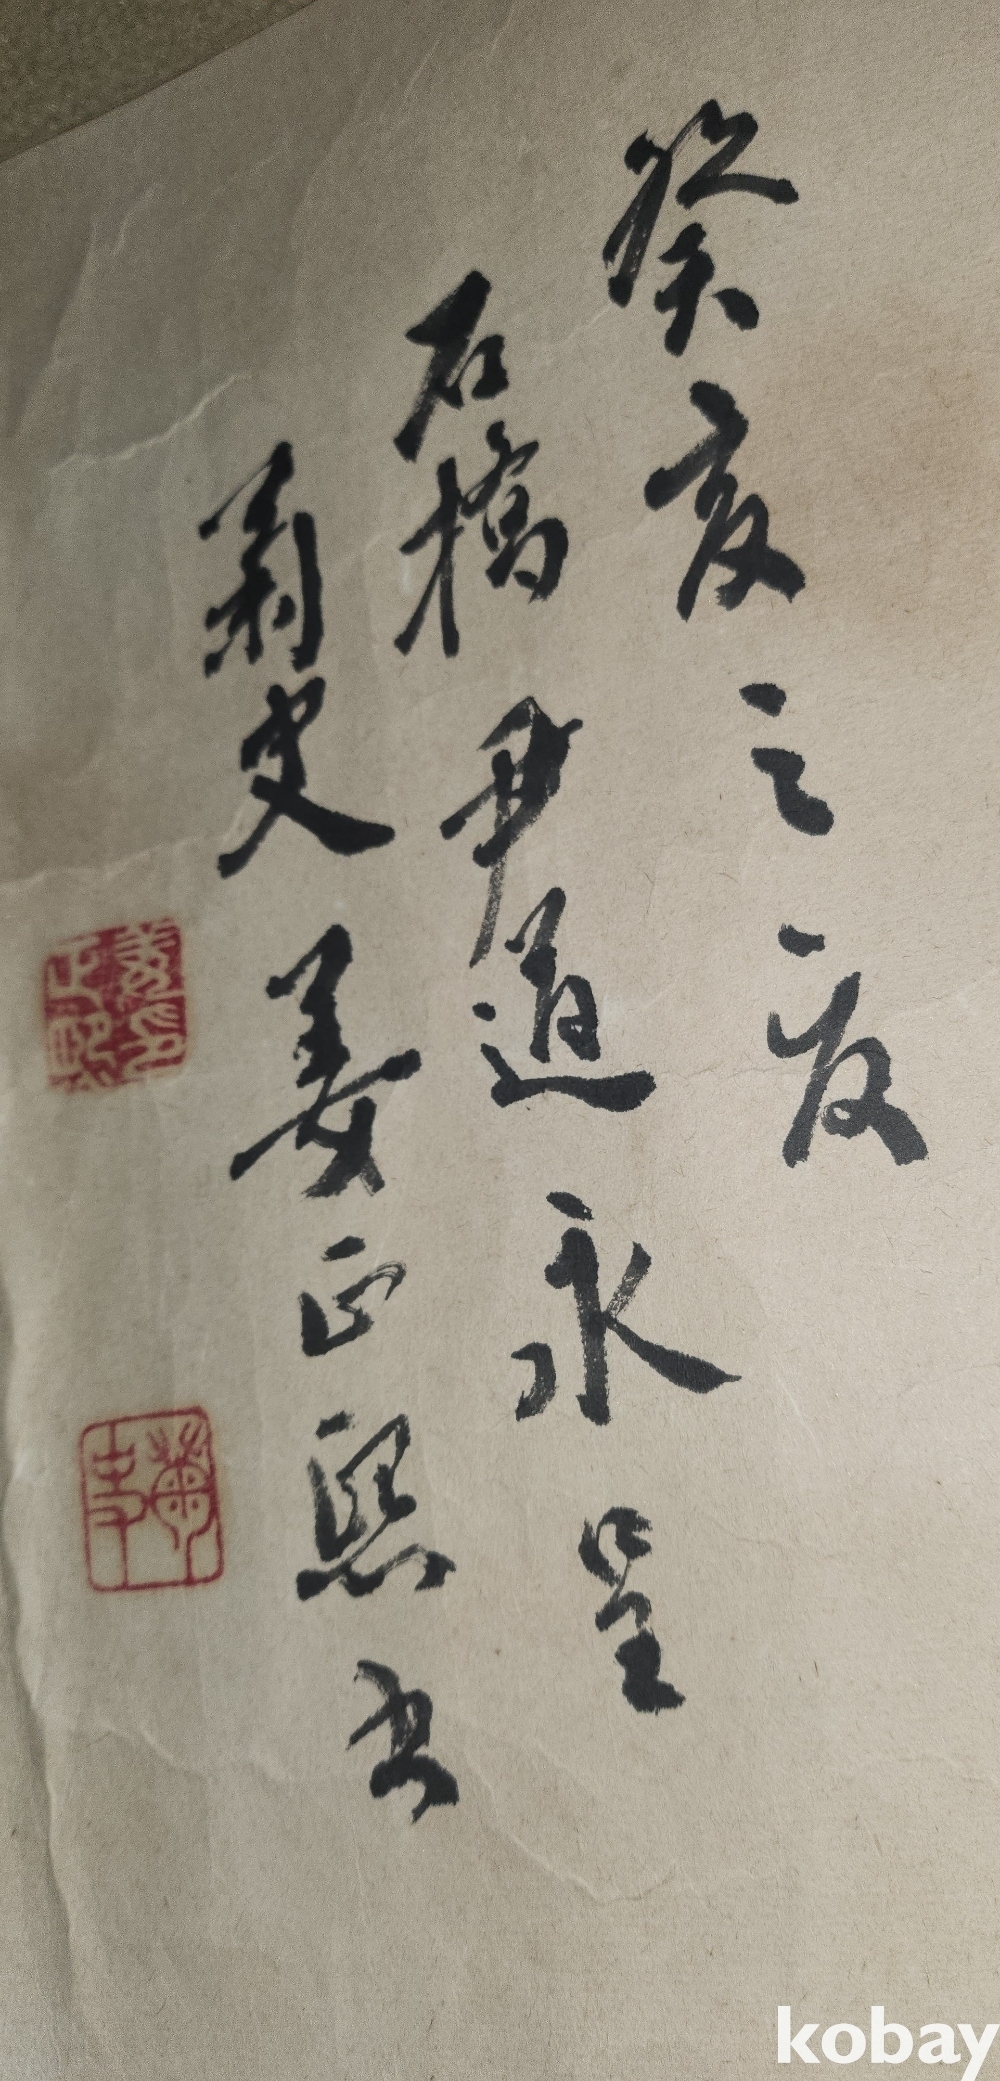 癸亥之夏
石橋 尹道永 呈
菊史 姜正熙 書
kobay